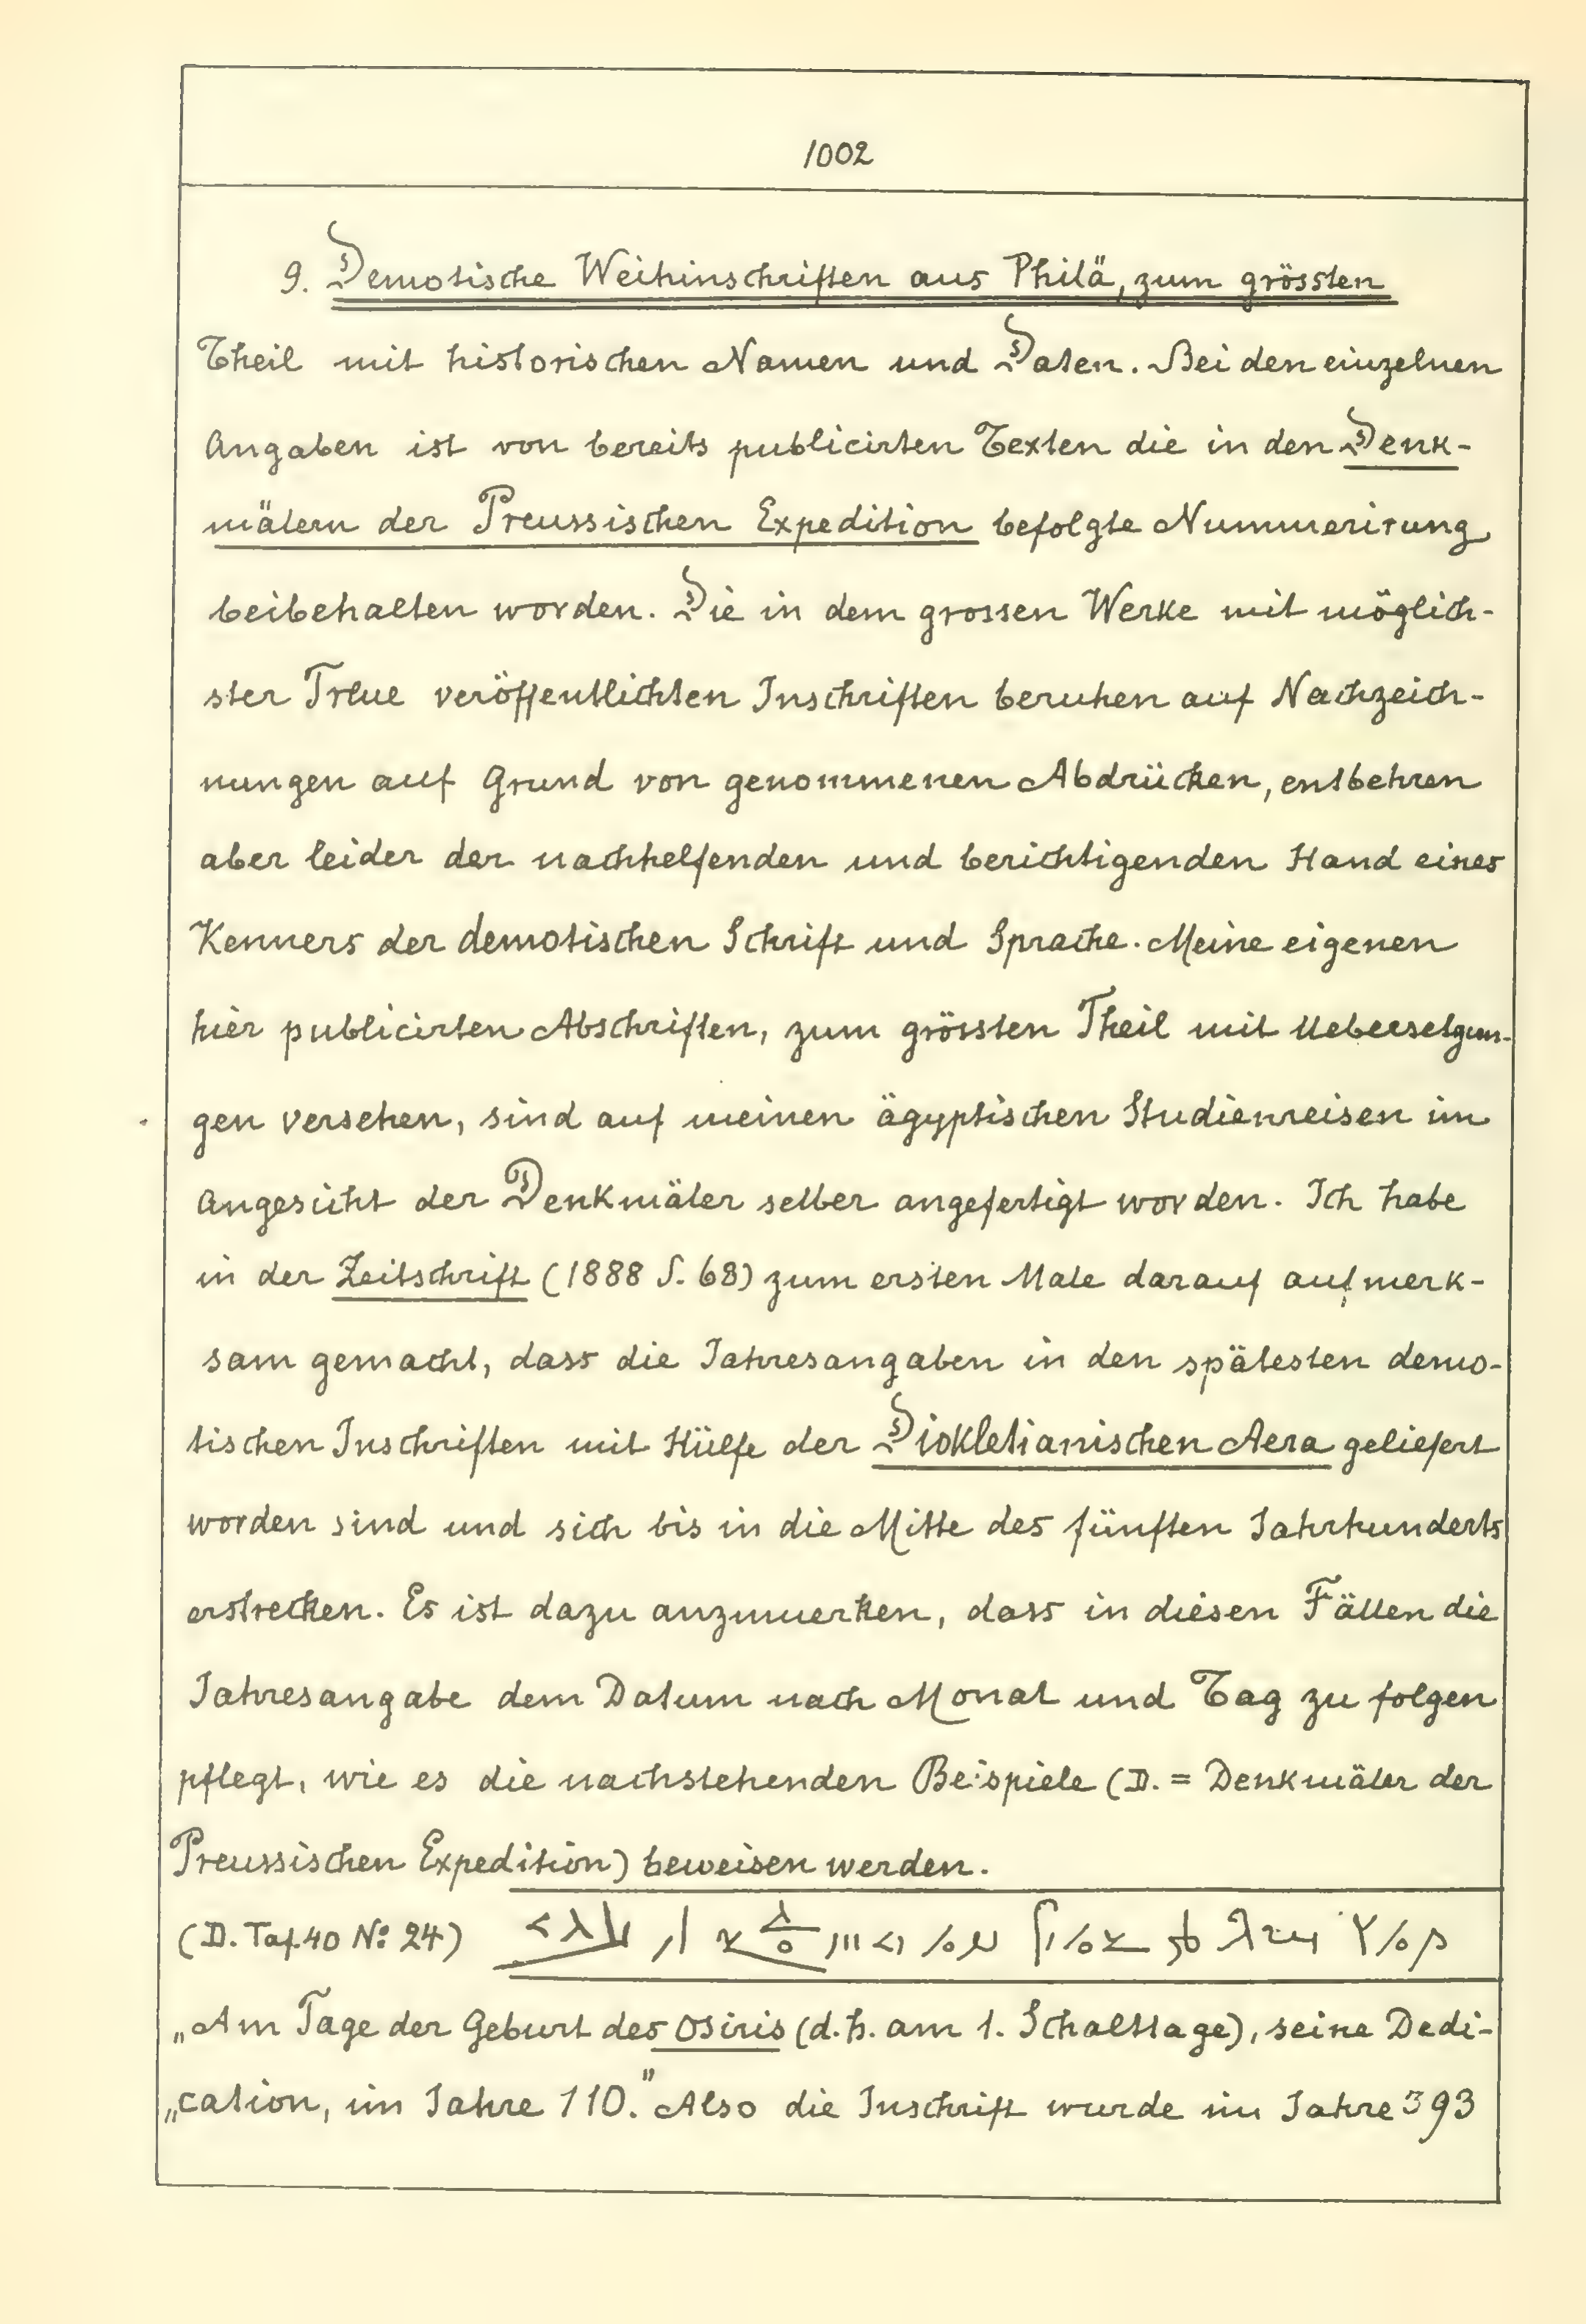 1002
9. Demotische Weihinschriften aus Philä, zum grössten
Theil mit historischen Namen und Daten. Bei den einzelnen
Angaben ist von bereits publicirten Texten die in den Denk-
mälern der Preussischen Expedition befolgte Nummerirung
beibehalten worden. Die in dem grossen Werke mit möglich-
ster Treue veröffentlichten Inschriften beruhen auf Nachzeich-
nungen auf Grund von genommenen Abdrücken, entbehren
aber leider der nachhelfenden und berichtigenden Hand eines
Kenners der demotischen Schrift und Sprache. Meine eigenen
hier publicirten Abschriften, zum grössten Theil mit Uebersetzun-
gen versehen, sind auf meinen ägyptischen Studienreisen im
Angesicht der Denkmäler selber angefertigt worden. Ich habe
in der Zeitschrift (1888 S. 68) zum ersten Male darauf aufmerk-
sam gemacht, dass die Jahresangaben in den spätesten demo-
tischen Inschriften mit Hülfe der Diokletianischen Aera geliefert
worden sind und sich bis in die Mitte des fünften Jahrhunderts
erstrecken. Es ist dazu anzumerken, dass in diesen Fällen die
Jahresangabe dem Datum nach Monat und Tag zu folgen
pflegt, wie es die nachstehenden Beispiele (D. = Denkmäler der
Preussischen Expedition) beweisen werden.
(D. Taf. 40 No: 24)
„Am Tage der Geburt des Osiris (d.h. am 1. Schalttage), seine Dedi-
„cation, im Jahre 110." Also die Inschrift wurde im Jahre 393